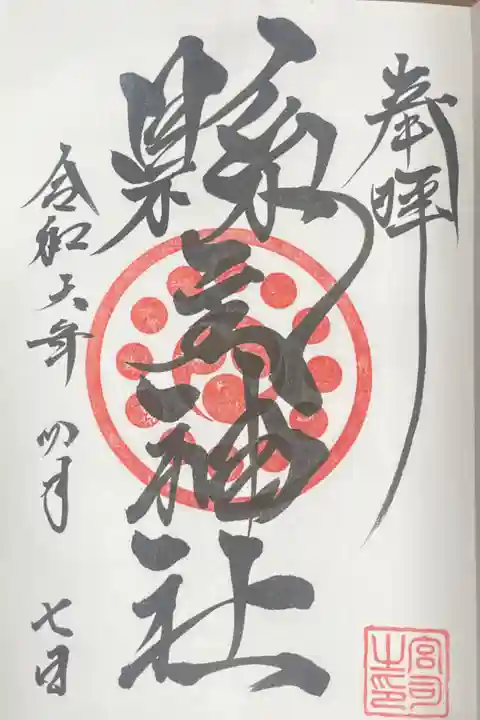 奉拝
縣神社
令和六年 四月 七日
宮司之印